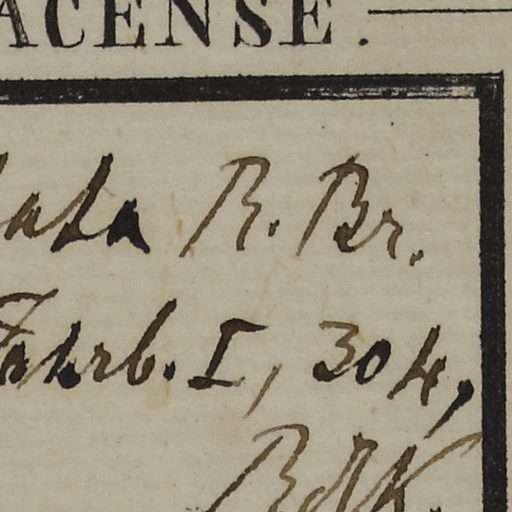 ACENSE.
lata R. Br.
Jahrb. I, 304,